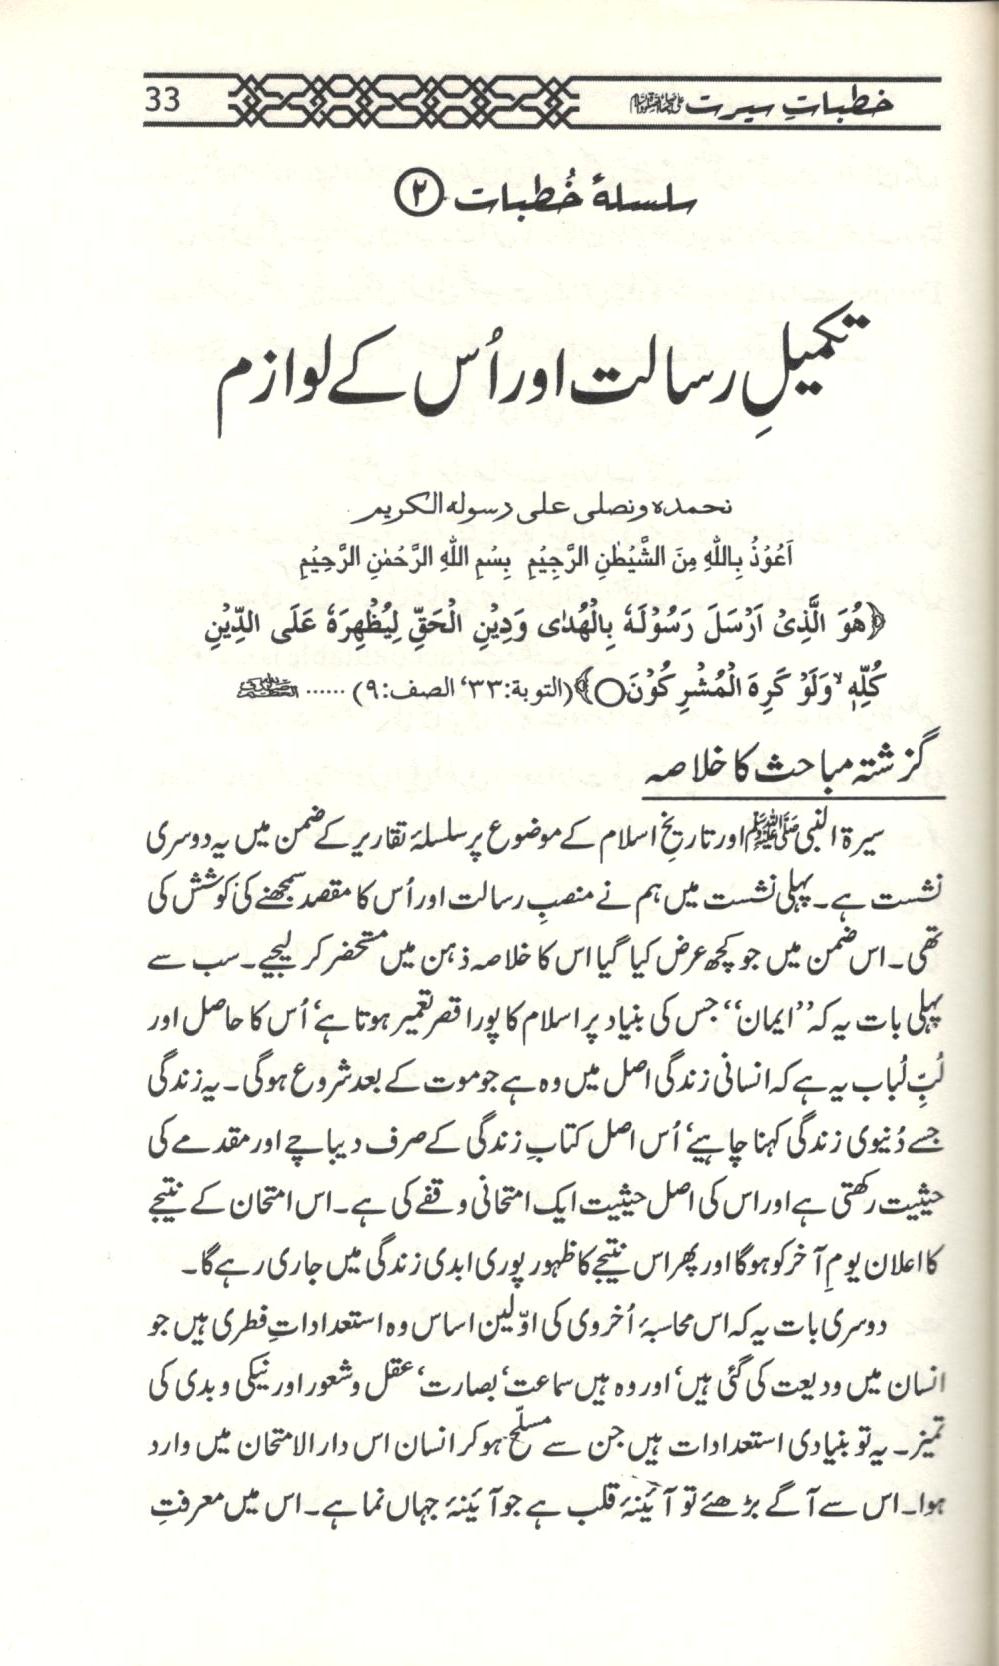 خطباتِ سیرت ﷺ 33
سلسلۂ خُطبات ۲
تکمیلِ رسالت اور اُس کے لوازم
نحمدہ ونصلی علی رسولہ الکریم
اَعُوْذُ بِاللّٰهِ مِنَ الشَّیْطٰنِ الرَّجِیْمِ بِسْمِ اللّٰهِ الرَّحْمٰنِ الرَّحِیْمِ
﴿هُوَ الَّذِیْۤ اَرْسَلَ رَسُوْلَهٗ بِالْهُدٰى وَدِیْنِ الْحَقِّ لِیُظْهِرَهٗ عَلَى الدِّیْنِ
كُلِّهٖ ۙ وَلَوْ كَرِهَ الْمُشْرِكُوْنَ○﴾ (التوبة:۳۳، الصف:۹) ...... صدق اللہ العظیم
گزشتہ مباحث کا خلاصہ
سیرۃ النبی ﷺ اور تاریخِ اسلام کے موضوع پر سلسلۂ تقاریر کے ضمن میں یہ دوسری
نشست ہے۔ پہلی نشست میں ہم نے منصبِ رسالت اور اُس کا مقصد سمجھنے کی کوشش کی
تھی۔ اس ضمن میں جو کچھ عرض کیا گیا اس کا خلاصہ ذہن میں مستحضر کر لیجیے۔ سب سے
پہلی بات یہ کہ ’’ایمان‘‘ جس کی بنیاد پر اسلام کا پورا قصر تعمیر ہوتا ہے‘ اُس کا حاصل اور
لُبِّ لُباب یہ ہے کہ انسانی زندگی اصل میں وہ ہے جو موت کے بعد شروع ہوگی۔ یہ زندگی
جسے دُنیوی زندگی کہنا چاہیے‘ اُس اصل کتابِ زندگی کے صرف دیباچے اور مقدمے کی
حیثیت رکھتی ہے اور اس کی اصل حیثیت ایک امتحانی وقفے کی ہے۔ اس امتحان کے نتیجے
کا اعلان یومِ آخر کو ہوگا اور پھر اس نتیجے کا ظہور پوری ابدی زندگی میں جاری رہے گا۔
دوسری بات یہ کہ اس محاسبۂ اُخروی کی اوّلین اساس وہ استعداداتِ فطری ہیں جو
انسان میں ودیعت کی گئی ہیں‘ اور وہ ہیں سماعت‘ بصارت‘ عقل و شعور اور نیکی و بدی کی
تمیز۔ یہ تو بنیادی استعدادات ہیں جن سے مسلّح ہو کر انسان اس دارالامتحان میں وارد
ہوا۔ اس سے آگے بڑھئے تو آئینۂ قلب ہے جو آئینۂ جہاں نما ہے۔ اس میں معرفتِ